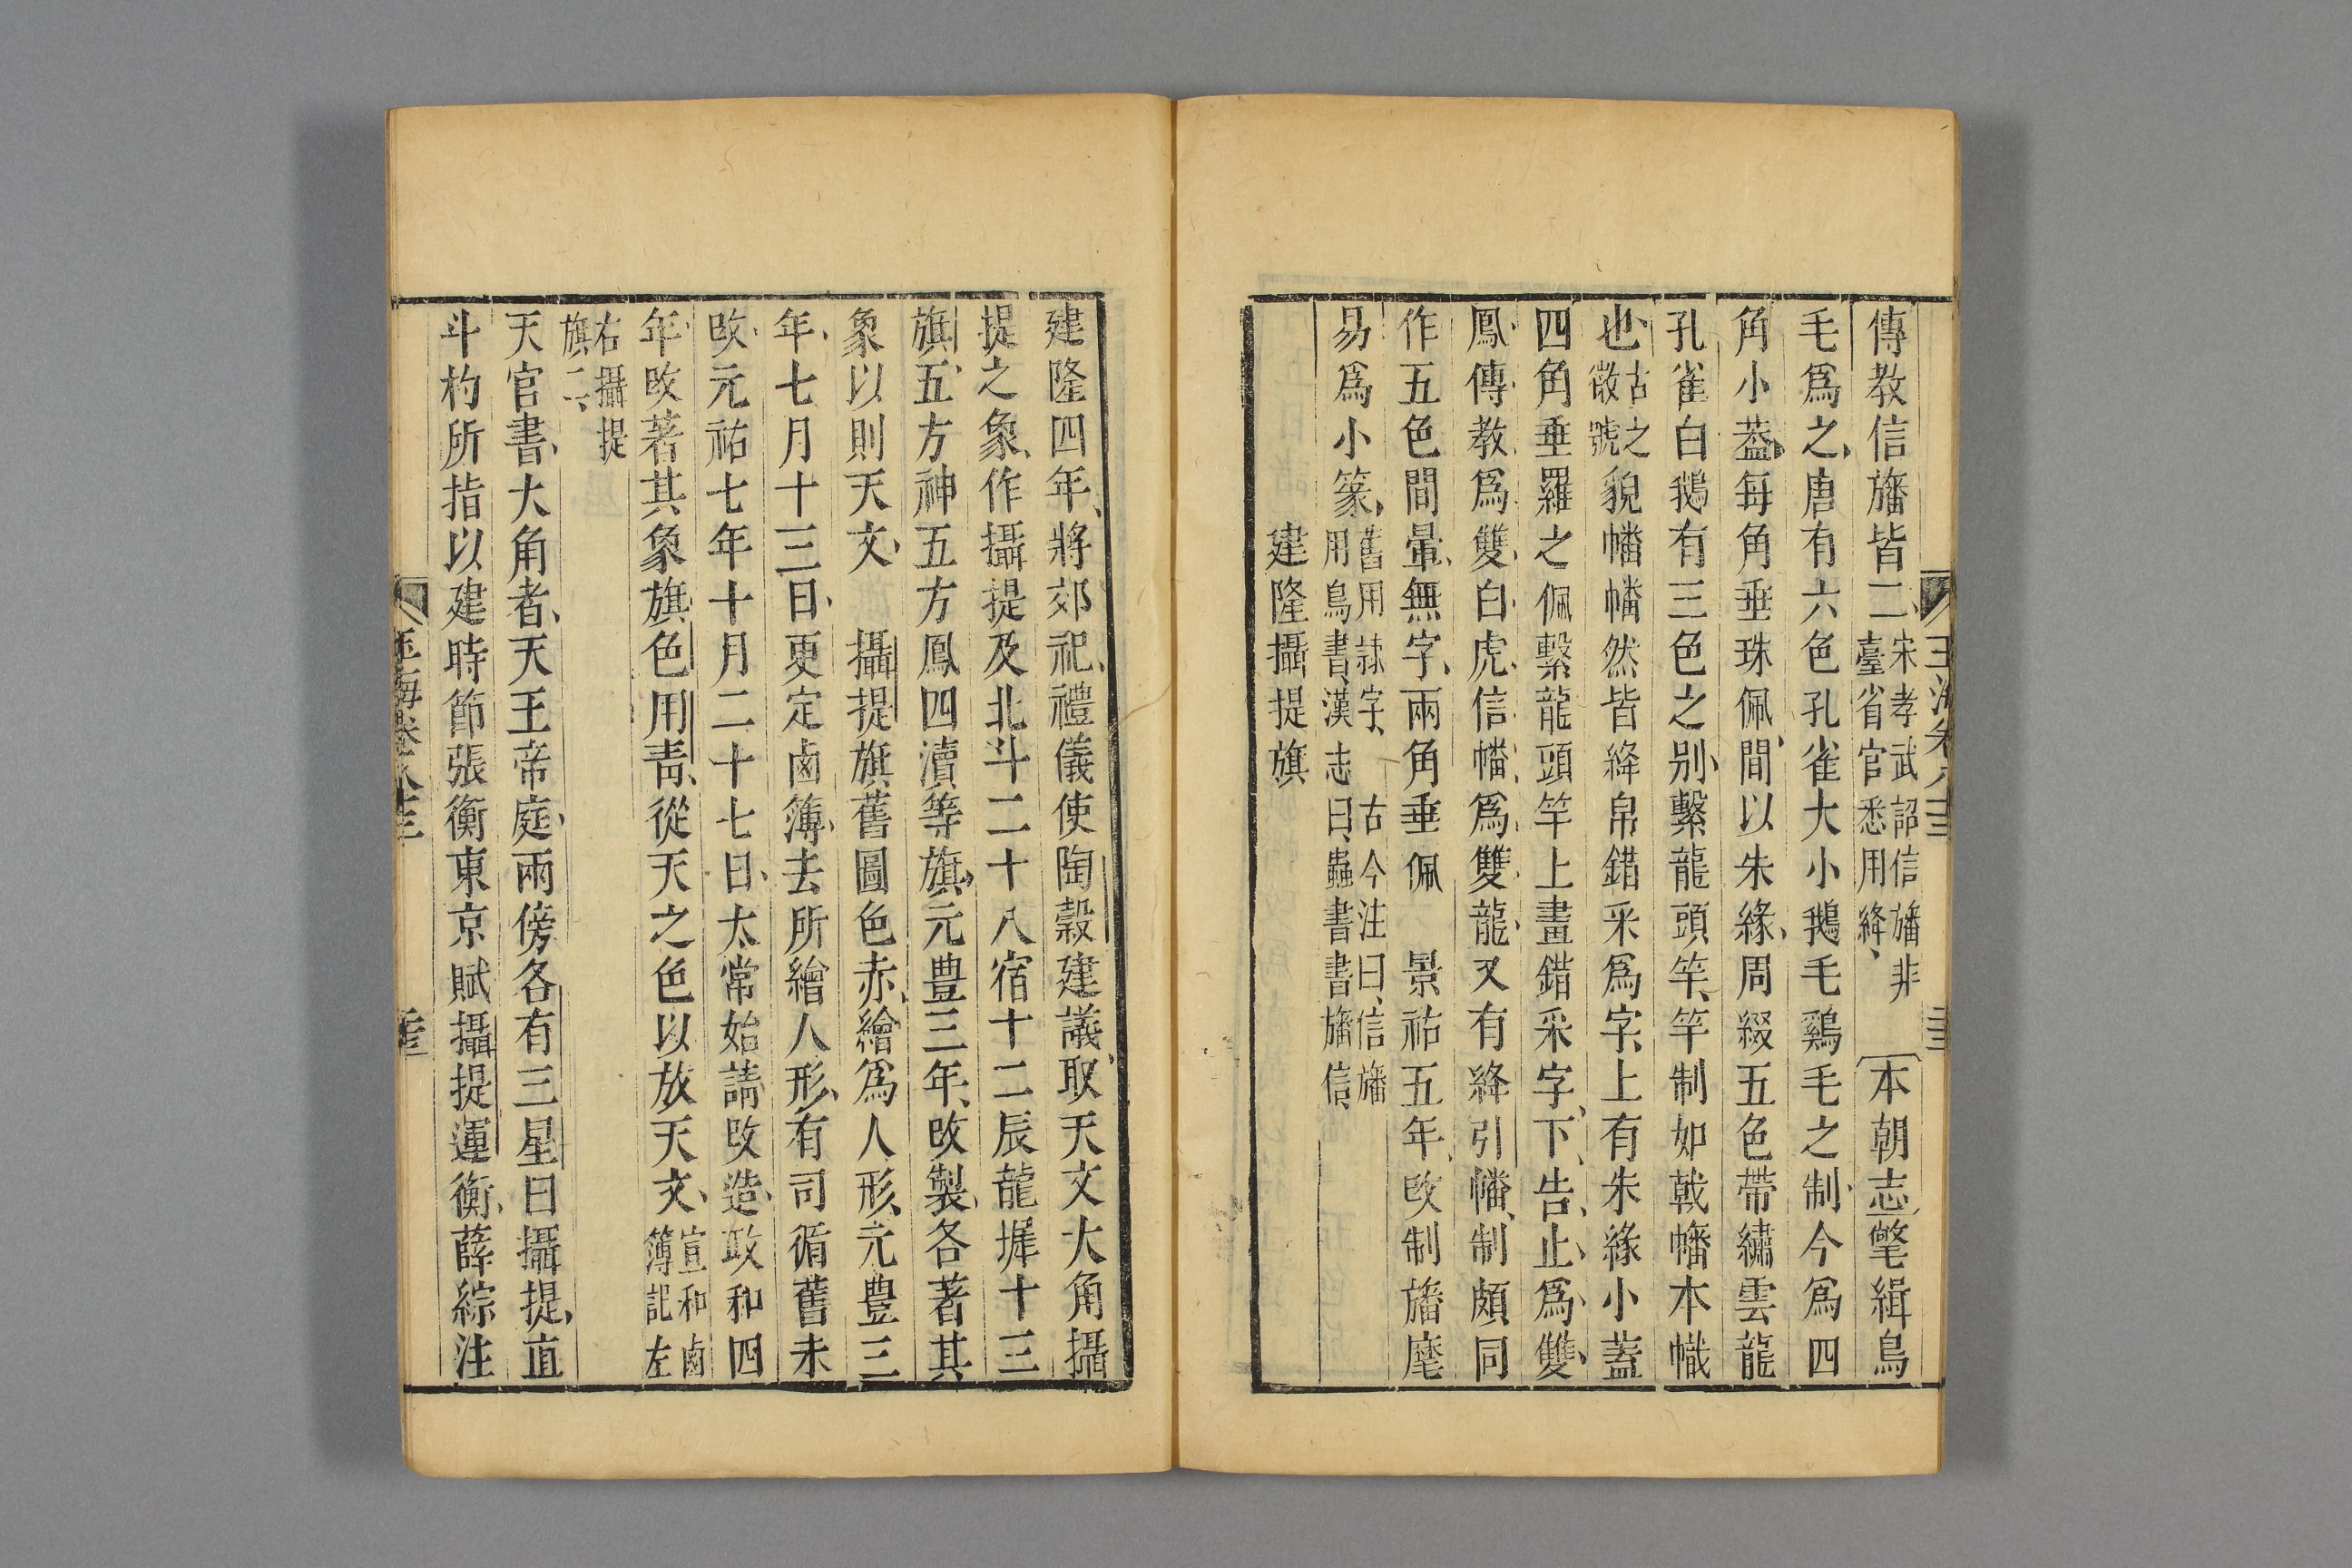 傳教信旛皆二宋孝武詔信旛非臺省官悉用絳本朝志氅緝鳥
毛爲之唐有六色孔雀大小鵝毛雞毛之制今爲四
角小葢每角垂珠佩間以朱緣周綴五色帶繡雲龍
孔雀白鵝有三色之别繫龍頭竿竿制如戟幡本幟
也古之徽號貌幡幡然皆絳帛錯采爲字上有朱緣小葢
四角垂羅之佩繫龍頭竿上畫錯采字下告止爲雙
鳳傳教爲雙白虎信幡爲雙龍又有絳引幡制頗同
作五色間暈無字兩角垂佩景祐五年改制旛麾
易爲小篆舊用隷字用鳥書漢志曰蟲書書旛信古今注曰信旛
建隆攝提旗
建隆四年將郊祀禮儀使陶穀建議取天文大角攝
提之象作攝提及北斗二十八宿十二辰龍墀十三
旗五方神五方鳳四瀆等旗元豊三年改製各著其
象以則天文攝提旗舊圖色赤繪爲人形元豊三
年七月十三日更定鹵簿去所繪人形有司循舊未
改元祐七年十月二十七日太常始請改造政和四
年改著其象旗色用靑從天之色以放天文宣和鹵簿記左
右攝提旗二
天官書大角者天王帝庭兩傍各有三星曰攝提直
斗杓所指以建時節張衡東京賦攝提運衡薛綜注